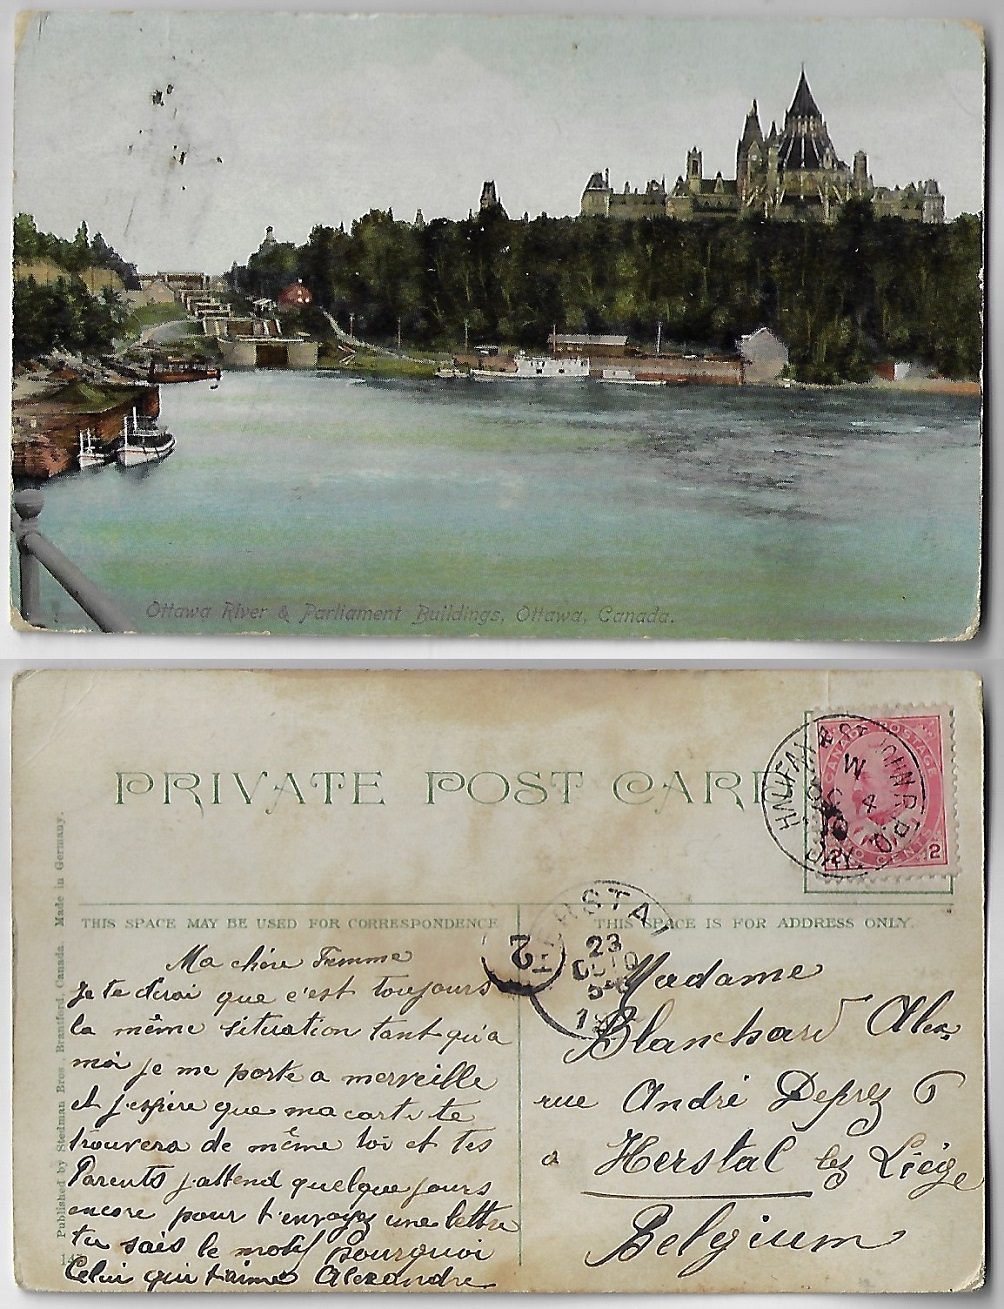 Ottawa River & Parliament Buildings, Ottawa, Canada.
PRIVATE POST CARD
HALIFAX & ST JOHN R.P.O.
W
OC 4
CANADA POSTAGE
2 TWO CENTS 2
Published by Stedman Bros., Brantford, Canada. Made in Germany.
THIS SPACE MAY BE USED FOR CORRESPONDENCE
THIS SPACE IS FOR ADDRESS ONLY.
HERSTAL
23
OCT
2
Ma chère Femme
Je te dirai que c'est toujours
la même situation tant qu'a
moi je me porte a merveille
et j'espère que ma carte te
trouvera de même toi et tes
Parents j'attend quelque jours
encore pour t'envoyez une lettre
tu sais le motif pourquoi
Celui qui t'aime Alexandre
Madame
Blanchard Alex
rue André Deprez 6
a Herstal lez Liège
Belgium